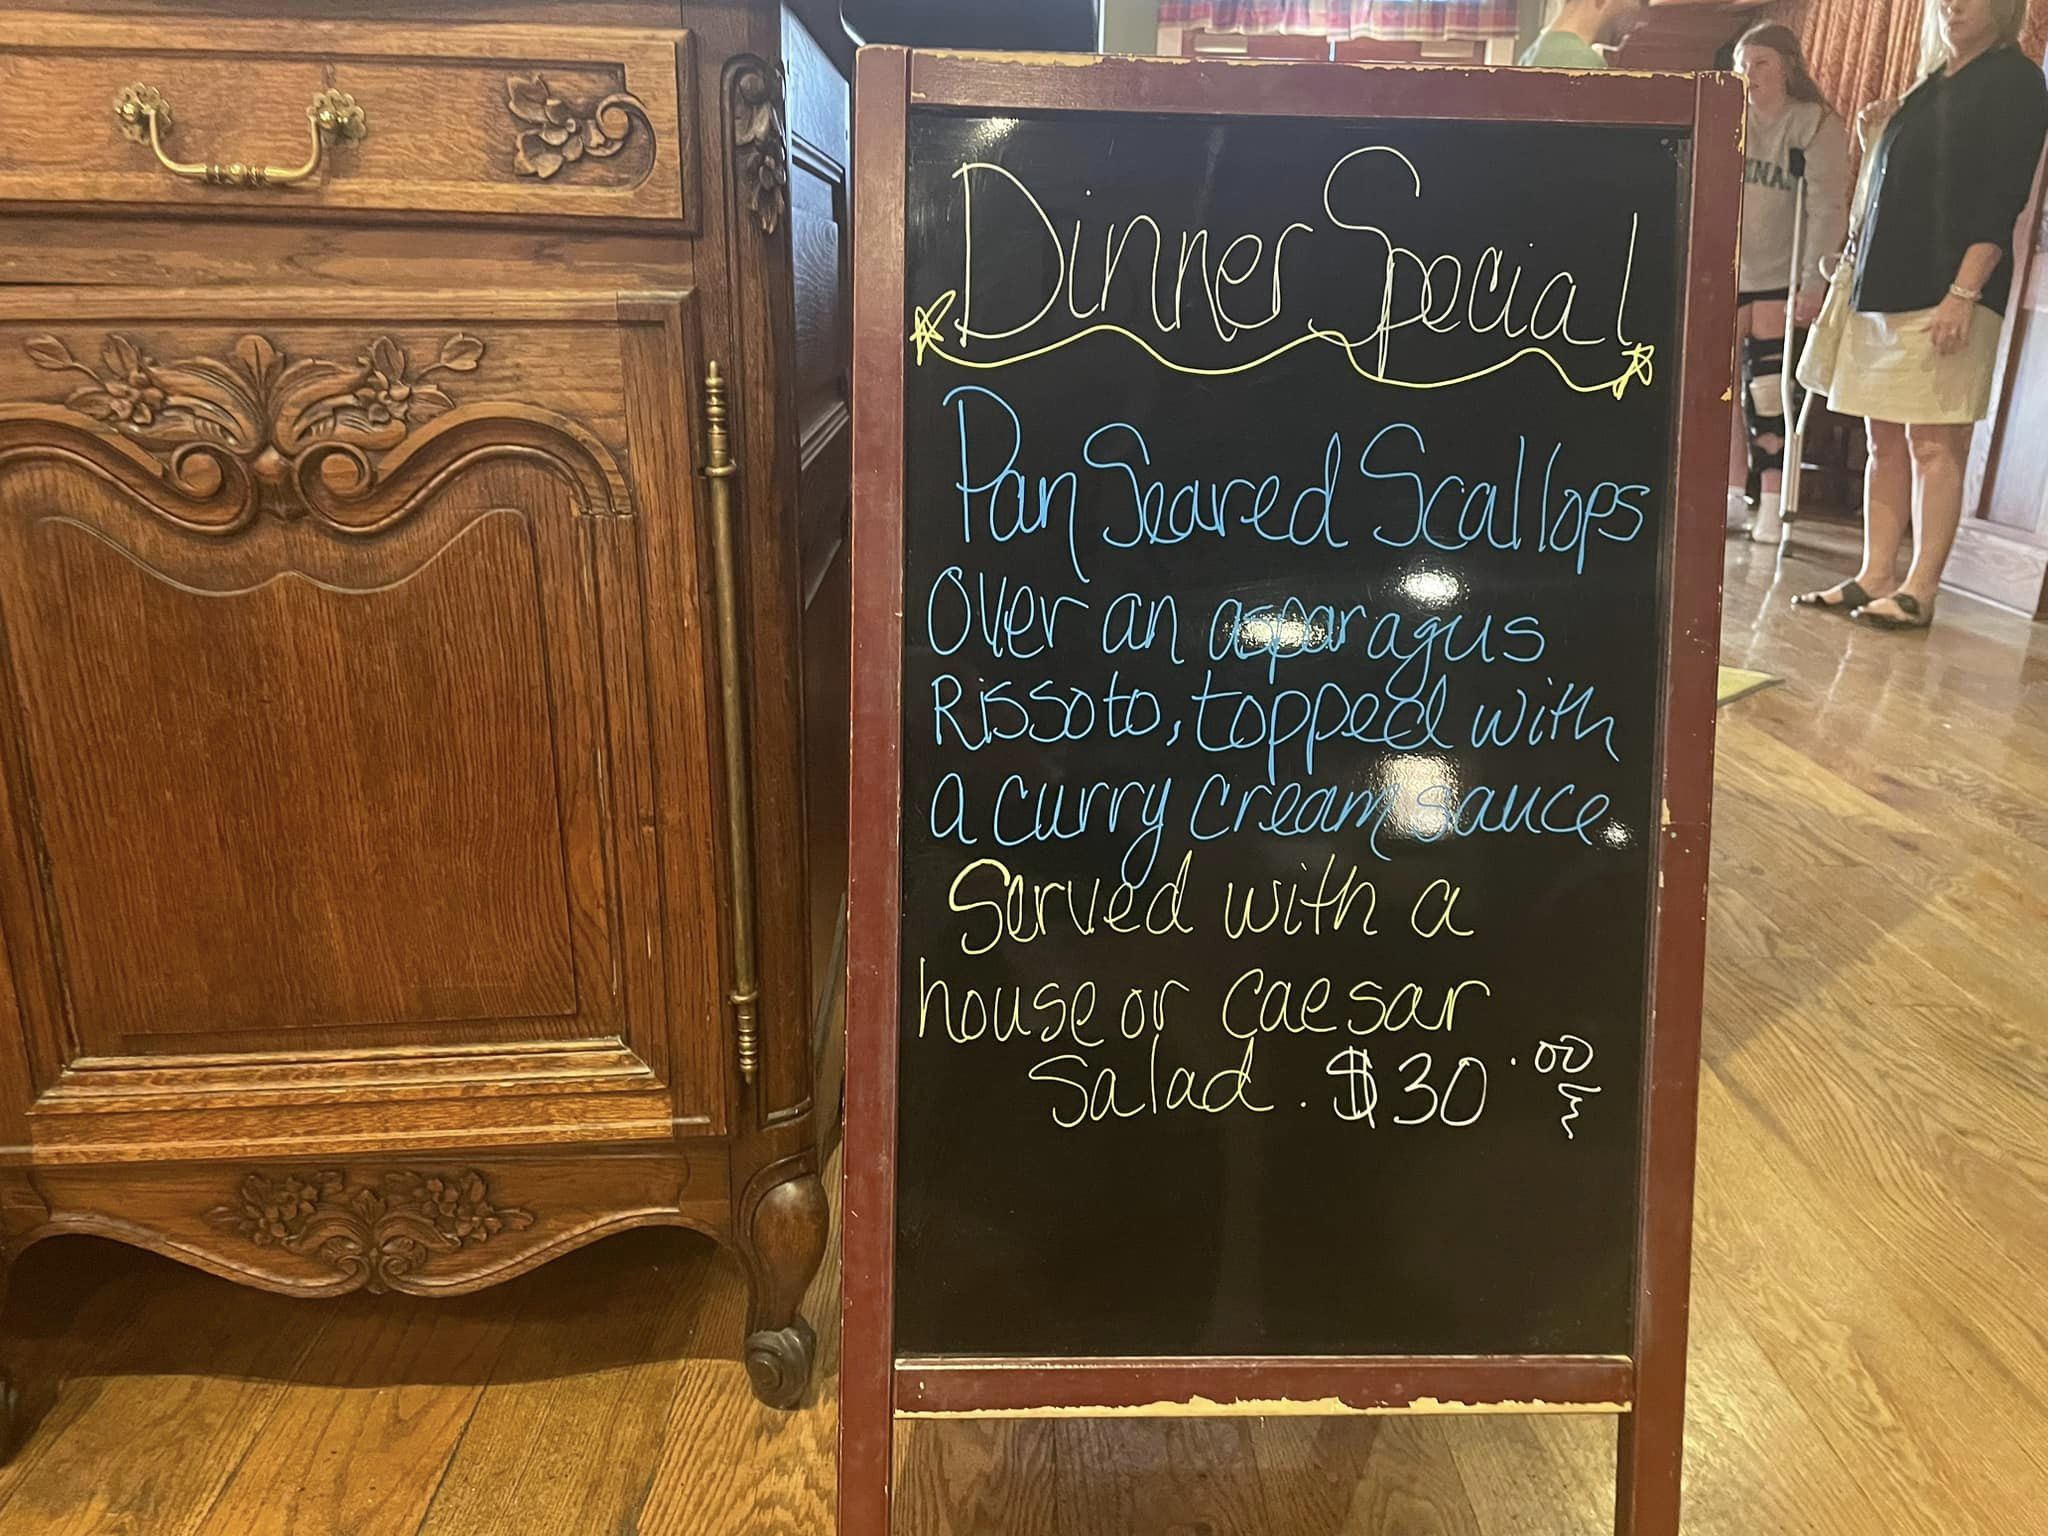 Dinner Special
Pan Seared Scallops
over an asparagus
Rissoto, topped with
a curry cream sauce
Served with a
house or Caesar
Salad. $30.00